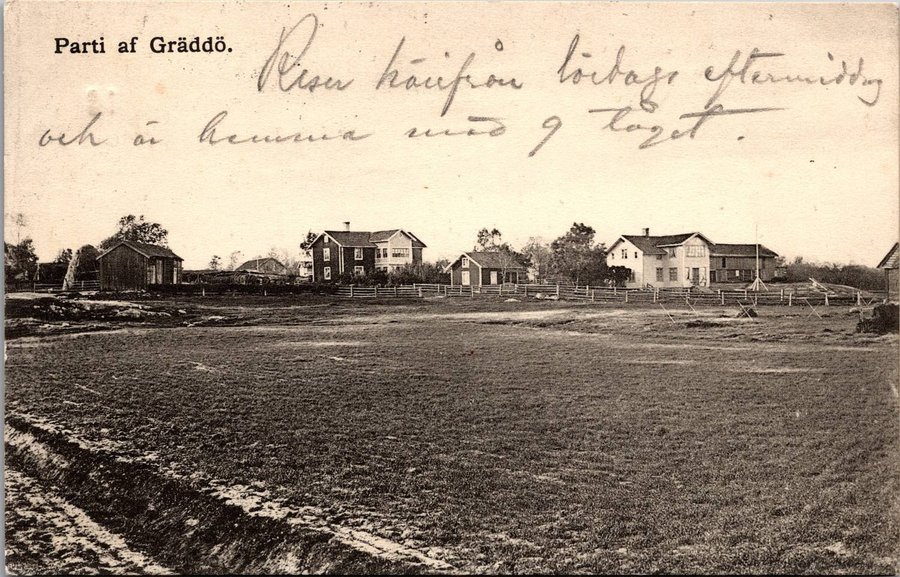 Parti af Gräddö.
Reser härifrån lördags eftermiddag
och är hemma med 9 tåget.